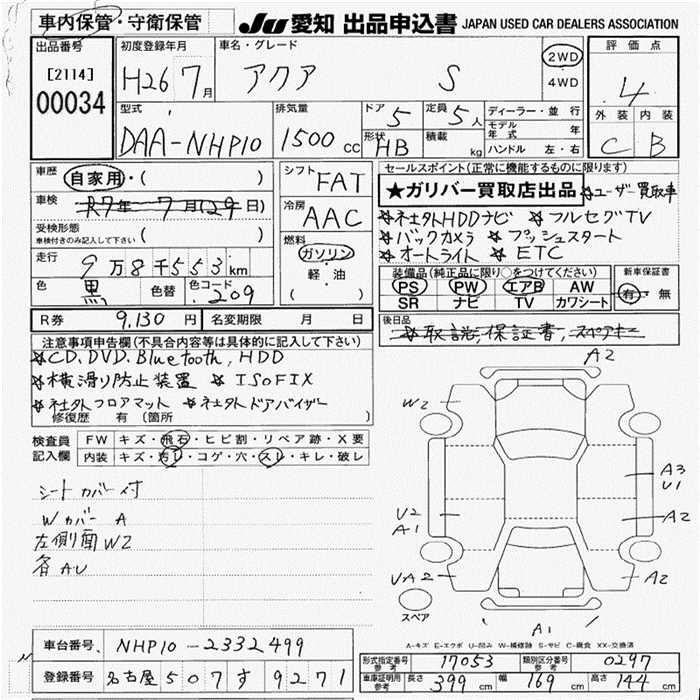 車内保管・守衛保管
JU 愛知 出品申込書 JAPAN USED CAR DEALERS ASSOCIATION
出品番号 [2114] 00034
初度登録年月 H26 7月
車名・グレード アクア S
2WD 4WD
評価点 4
外装 内装 C B
型式 DAA-NHP10
排気量 1500 cc
ドア 5 定員 5人
形状 HB 積載 kg
ディーラー・並行
モデル年式 年
ハンドル 左・右
車歴 自家用・( )
車検 R7年 7月(29日)
受検形態 車検付きのみ記入して下さい ( )
走行 9万8千553km
色 黒 色替 色コード 209
シフト FAT
冷房 AAC
燃料 ガソリン 軽・油 ( )
セールスポイント(正常に機能するものに限ります)
★ガリバー買取店出品 ☆ユーザー買取車
☆社外HDDナビ ☆フルセグTV
☆バックカメラ ☆プッシュスタート
☆オートライト ☆ETC
装備品(純正品に限り○をつけてください)
PS PW エアB AW
SR ナビ TV カワシート
新車保証書 有・無
R券 9,130円 名変期限 月 日
後日品 ☆取説,保証書,スペアキー
注意事項申告欄(不具合内容等は具体的に記入して下さい)
☆CD,DVD,Bluetooth,HDD
☆横滑り防止装置 ☆ISOFIX
☆社外フロアマット ☆社外ドアバイザー
修復歴 有(箇所 )
検査員記入欄 FW キズ・飛石・ヒビ割・リペア跡・X要
内装 キズ・汚レ・コゲ・穴・スレ・キレ・破レ
シートカバー付
Wカバー A
左側面W2
各AU
A2
W2
A3
U1
U2
A1
A2
UA2
A2
A1
スペア
A-キズ E-エクボ U-凹み W-補修跡 S-サビ C-腐食 XX-交換済
車台番号 NHP10-2332499
登録番号 名古屋 507 す 9271
形式指定番号 参考 17053 類別区分番号 参考 0297
車庫証明用参考 長さ 399cm 幅 169cm 高さ 144cm